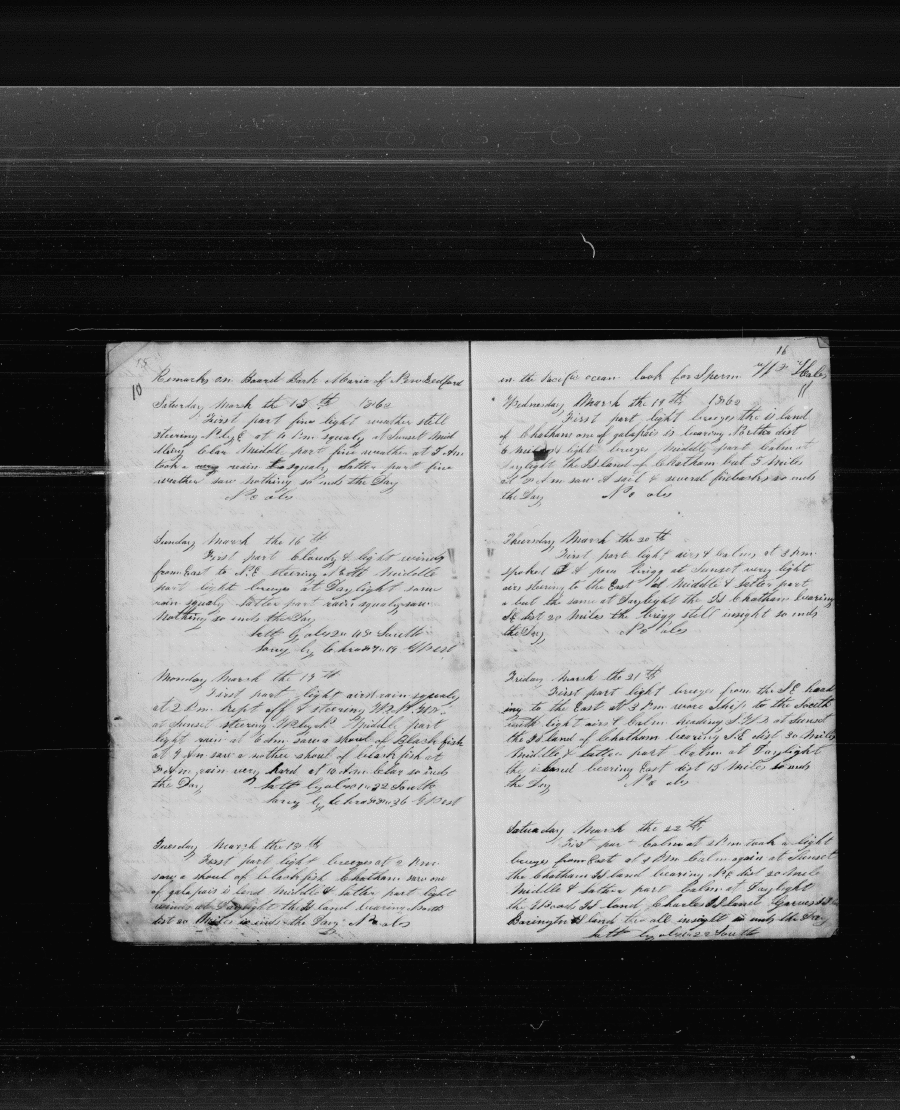 15
10
Remarks on Board Bark Maria of New Bedford
Saturday March the 15 th 1862
First part fine light weather still
steering N by E at 4 P.m squaly at Sunset mid
Clear Middle part fine weather at 7 Am
took a rain squaly latter part fine
weather saw nothing so ends the Day
N o obs
Sunday March the 16 th
First part Cloudy & light winds
from East to steering North Middle
part light breezes at Daylight some
rain squaly latter part rain squaly saw
Nothing so ends the Day
latt by obs 2 = 48 South
Long by Chro West
Monday March the 17 th
First part light airs & rain squaly
at 2 P.m kept off & steering
at Sunset steering W by N Middle part
light rain at 6 A.m saw a shoul of Black fish
at 7 Am saw a nother shoul of black fish at
A.m rain very hard at 10 A.m Clear so ends
the Day latt by obs 1 = 22 South
Long by Chro West
Tuesday March the 18 th
First part light breezes at 2 P.m
saw a shoul of blackfish Chatham saw one
of galapais is land Middle & latter part light
winds at Daylight the Is land bearing North
dist 20 Miles so ends the Day N o obs
16
in the Pacific ocean look for Sperm Whales
11
Wednesday March the 19 th 1862
First part light breezes the is land
of Chatham one of galapais is bearing North dist
6 miles light breezes Middle part Calm at
Daylight the Is land of Chatham but 5 Miles
at A.m saw A sail & severl finbacks so ends
the Day N o obs
Thursday March the 20 th
First part light airs & Calms at 3 P.m
spoked A brigg at Sunset very light
airs steering to the East Middle & latter part
a but the same at Daylight the Is Chatham bearing
dist 20 Miles the brigg still insight so ends
the Day N o obs
Friday March the 21 th
First part light breezes from the head
ing to the East at 3 P.m wore Ship to the South
with light airs & Calm heading at Sunset
the Is land of Chatham bearing dist 30 Miles
Middle & latter part Calm at Daylight
the island bearing East dist 15 Miles so ends
the Day N o obs
Saturday March the 22 th
First part Calm at 2 P.m took a light
breezes from East at 4 P.m Calm again at Sunset
the Chatham Is land bearing N E dist 20 Mile
Middle & latter part Calm at Daylight
the Hoods Is land Charles Is land
Barington Is land the all insight so ends the Day
latt by obs 22 South